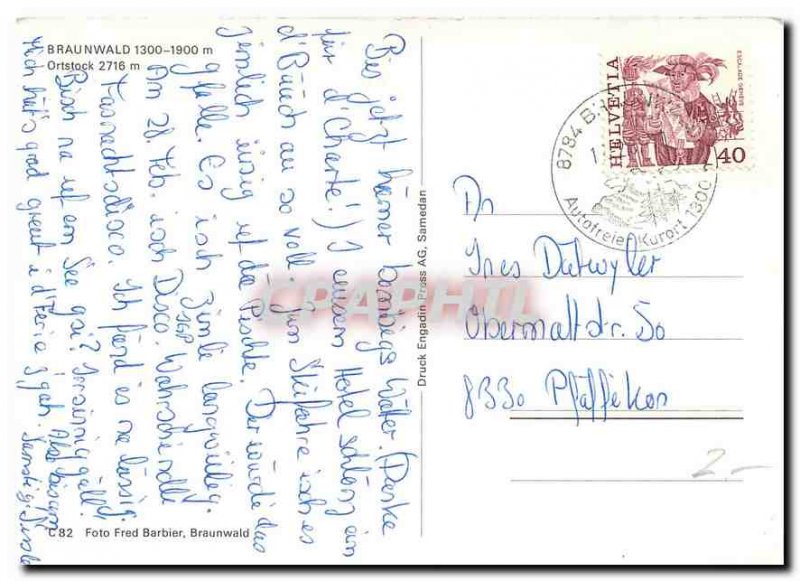 BRAUNWALD 1300–1900 m
Ortstock 2716 m
Bis jetzt hämer Wätter. (Danke
für d'Charte!) I eusem Hotel schlönd ein
d'Büüch so voll. Zum Skifahre isch es
ziemlich iisig uf de Pischte. Der würdi das
gfalle. Es isch zimli langwiilig.
Am 28. Feb. isch Disco. Wahrschindli
Fasnachtsdisco. Ich find es na lässig.
Bisch na uf em See gsi? Irrsinnig gäll!
Also bis am
Mich hät's grad greut i d'Ferie z'gah. Samstig
C 82 Foto Fred Barbier, Braunwald
Druck Engadin Press AG, Samedan
HELVETIA
ESCALADE GENEVE
40
8784 B
Autofreier Kurort 1300
An
Ines Dätwyler
Obermattstr. 50
8330 Pfäffikon
2.-
CPAPHIL